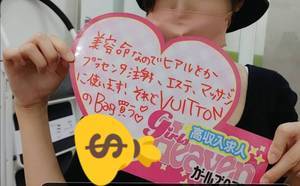 美容命なのでヒアルとか
プラセンタ注射、エステ、マッサージ
に使います! それとVUITTON
のBag買う♡
高収入求人
Girls
Heaven
ガールズ
$